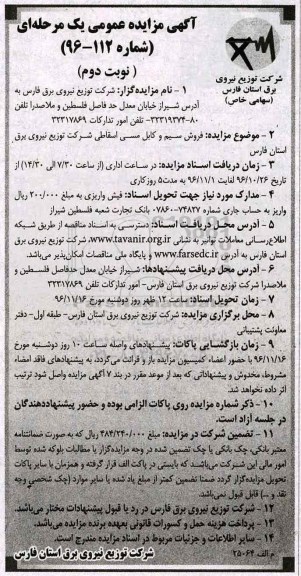 آگهی مزایده عمومی یک مرحله‌ای
(شماره ۱۱۲-۹۶)
( نوبت دوم)
شرکت توزیع نیروی
برق استان فارس
(سهامی خاص)
۱ - نام مزایده‌گزار: شرکت توزیع نیروی برق فارس به
آدرس شیراز خیابان معدل حد فاصل فلسطین و ملاصدرا تلفن
۸۰-۳۲۳۱۹۳۷۴- تلفن امور تدارکات ۳۲۳۱۷۸۶۹
۲ - موضوع مزایده: فروش سیم و کابل مسی اسقاطی شرکت توزیع نیروی برق
استان فارس
۳ - زمان دریافت اسناد مزایده: در ساعت اداری (از ساعت ۷/۳۰ الی ۱۴/۳۰) از
تاریخ ۹۶/۱۰/۲۶ لغایت ۹۶/۱۱/۱ به مدت۵ روزکاری
۴ - مدارک مورد نیاز جهت تحویل اسناد: فیش واریزی به مبلغ ۲۰۰/۰۰۰ ریال
واریز به حساب جاری شماره ۷۴۸۲۷-۰۷۸۶۰ بانک تجارت شعبه فلسطین شیراز
۵ - آدرس محل دریافت اسناد: دسترسی به اسناد مناقصه از طریق شبکه
اطلاع‌رسانی معاملات توانیر به نشانی www.tavanir.org.ir شرکت توزیع نیروی برق
استان فارس به آدرس www.farsedc.ir و پایگاه ملی مناقصات امکان‌پذیر می‌باشد.
۶ - آدرس محل دریافت پیشنهادها: شیراز خیابان معدل حدفاصل فلسطین و
ملاصدرا شرکت توزیع نیروی برق استان فارس- امور تدارکات- تلفن ۳۲۳۱۷۸۶۹
۷ - زمان تحویل اسناد: ساعت ۱۲ ظهر روز دوشنبه مورخ ۹۶/۱۱/۱۶
۸ - محل برگزاری مزایده: شرکت توزیع نیروی برق استان فارس- طبقه اول- دفتر
معاونت پشتیبانی
۹ - زمان بازگشایی پاکات: پیشنهادهای واصله ساعت ۱۰ روز دوشنبه مورخ
۹۶/۱۱/۱۶ با حضور اعضاء کمیسیون مزایده باز و قرائت می‌گردد، به پیشنهادهای فاقد امضاء
مشروط، مخدوش و پیشنهاداتی که بعد از موعد مقرر در بند ۷ آگهی مزایده واصل شود ترتیب
اثر داده نخواهد شد.
۱۰ - ذکر شماره مزایده روی پاکات الزامی بوده و حضور پیشنهاددهندگان
در جلسه آزاد است.
۱۱ - تضمین شرکت در مزایده: مبلغ ۳۸۴/۲۴۰/۰۰۰ ریال که به صورت ضمانتنامه
معتبر بانکی، چک بانکی یا چک تضمین شده در وجه مزایده‌گزار یا مطالبات بلوکه شده توسط
امور مالی این شرکت می‌باشد که بایستی در پاکت الف قرار گرفته و همزمان با سایر پاکات
تحویل مزایده‌گزار گردد ضمنا تضمین کمتر از مبلغ یاد شده یا سایر موارد (چک شخصی وجه
نقد و ...) قابل قبول نمی‌باشد.
۱۲ - شرکت توزیع نیروی برق فارس در رد یا قبول پیشنهادات مختار می‌باشد.
۱۳ - پرداخت هزینه حمل و کسورات قانونی بعهده برنده مزایده می‌باشد.
۱۴ - سایر اطلاعات و جزئیات مربوط در اسناد مزایده مندرج است.
م الف ۲۵۰۶۴
شرکت توزیع نیروی برق استان فارس